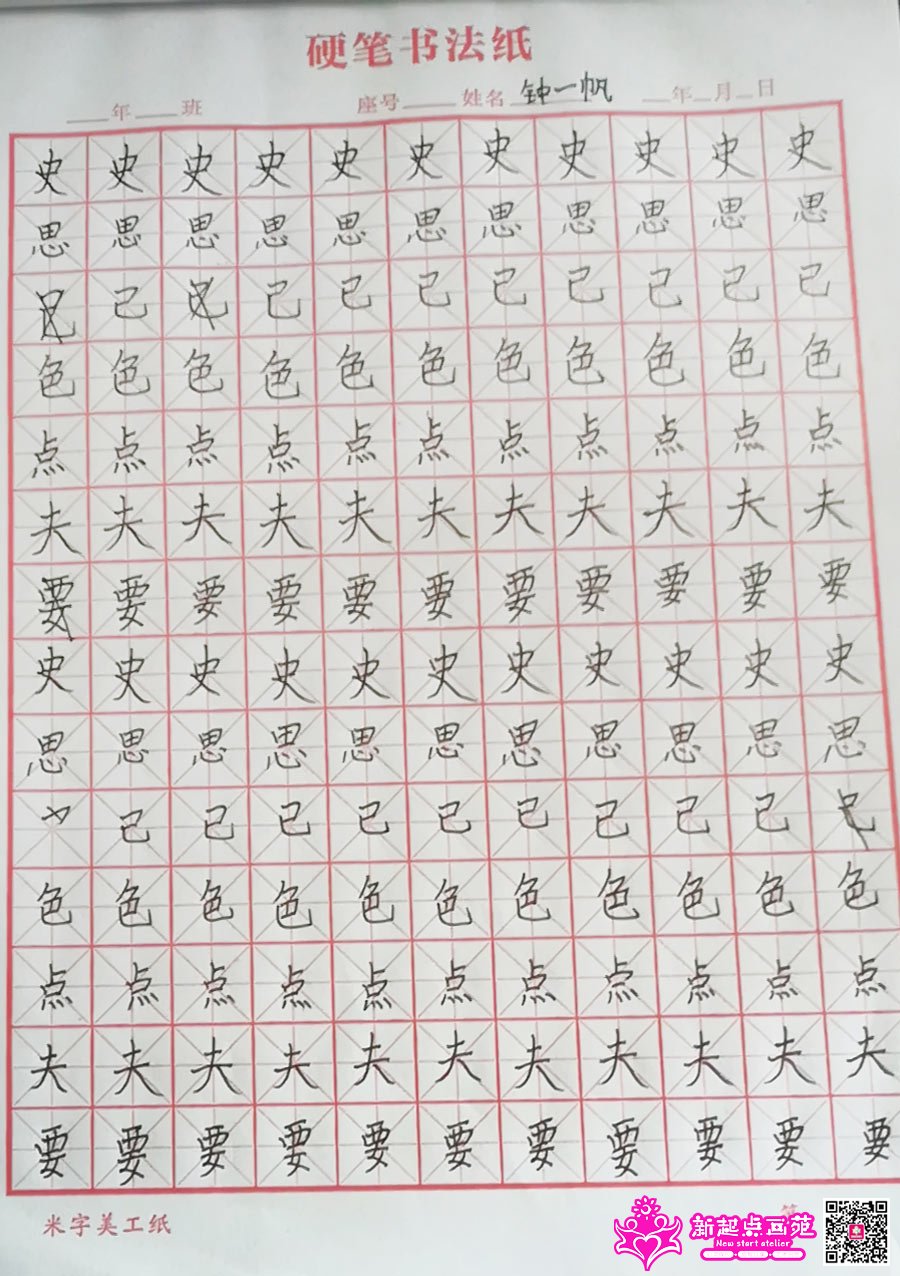 硬笔书法纸
年 班 座号 姓名 钟一帆 年 月 日
史 史 史 史 史 史 史 史 史 史 史
思 思 思 思 思 思 思 思 思 思 思
己 己 己 己 己 己 己 己 己
色 色 色 色 色 色 色 色 色 色 色
点 点 点 点 点 点 点 点 点 点 点
夫 夫 夫 夫 夫 夫 夫 夫 夫 夫 夫
要 要 要 要 要 要 要 要 要 要 要
史 史 史 史 史 史 史 史 史 史 史
思 思 思 思 思 思 思 思 思 思 思
己 己 己 己 己 己 己 己 己
色 色 色 色 色 色 色 色 色 色 色
点 点 点 点 点 点 点 点 点 点 点
夫 夫 夫 夫 夫 夫 夫 夫 夫 夫 夫
要 要 要 要 要 要 要 要 要 要 要
米字美工纸
新起点画苑
New start atelier